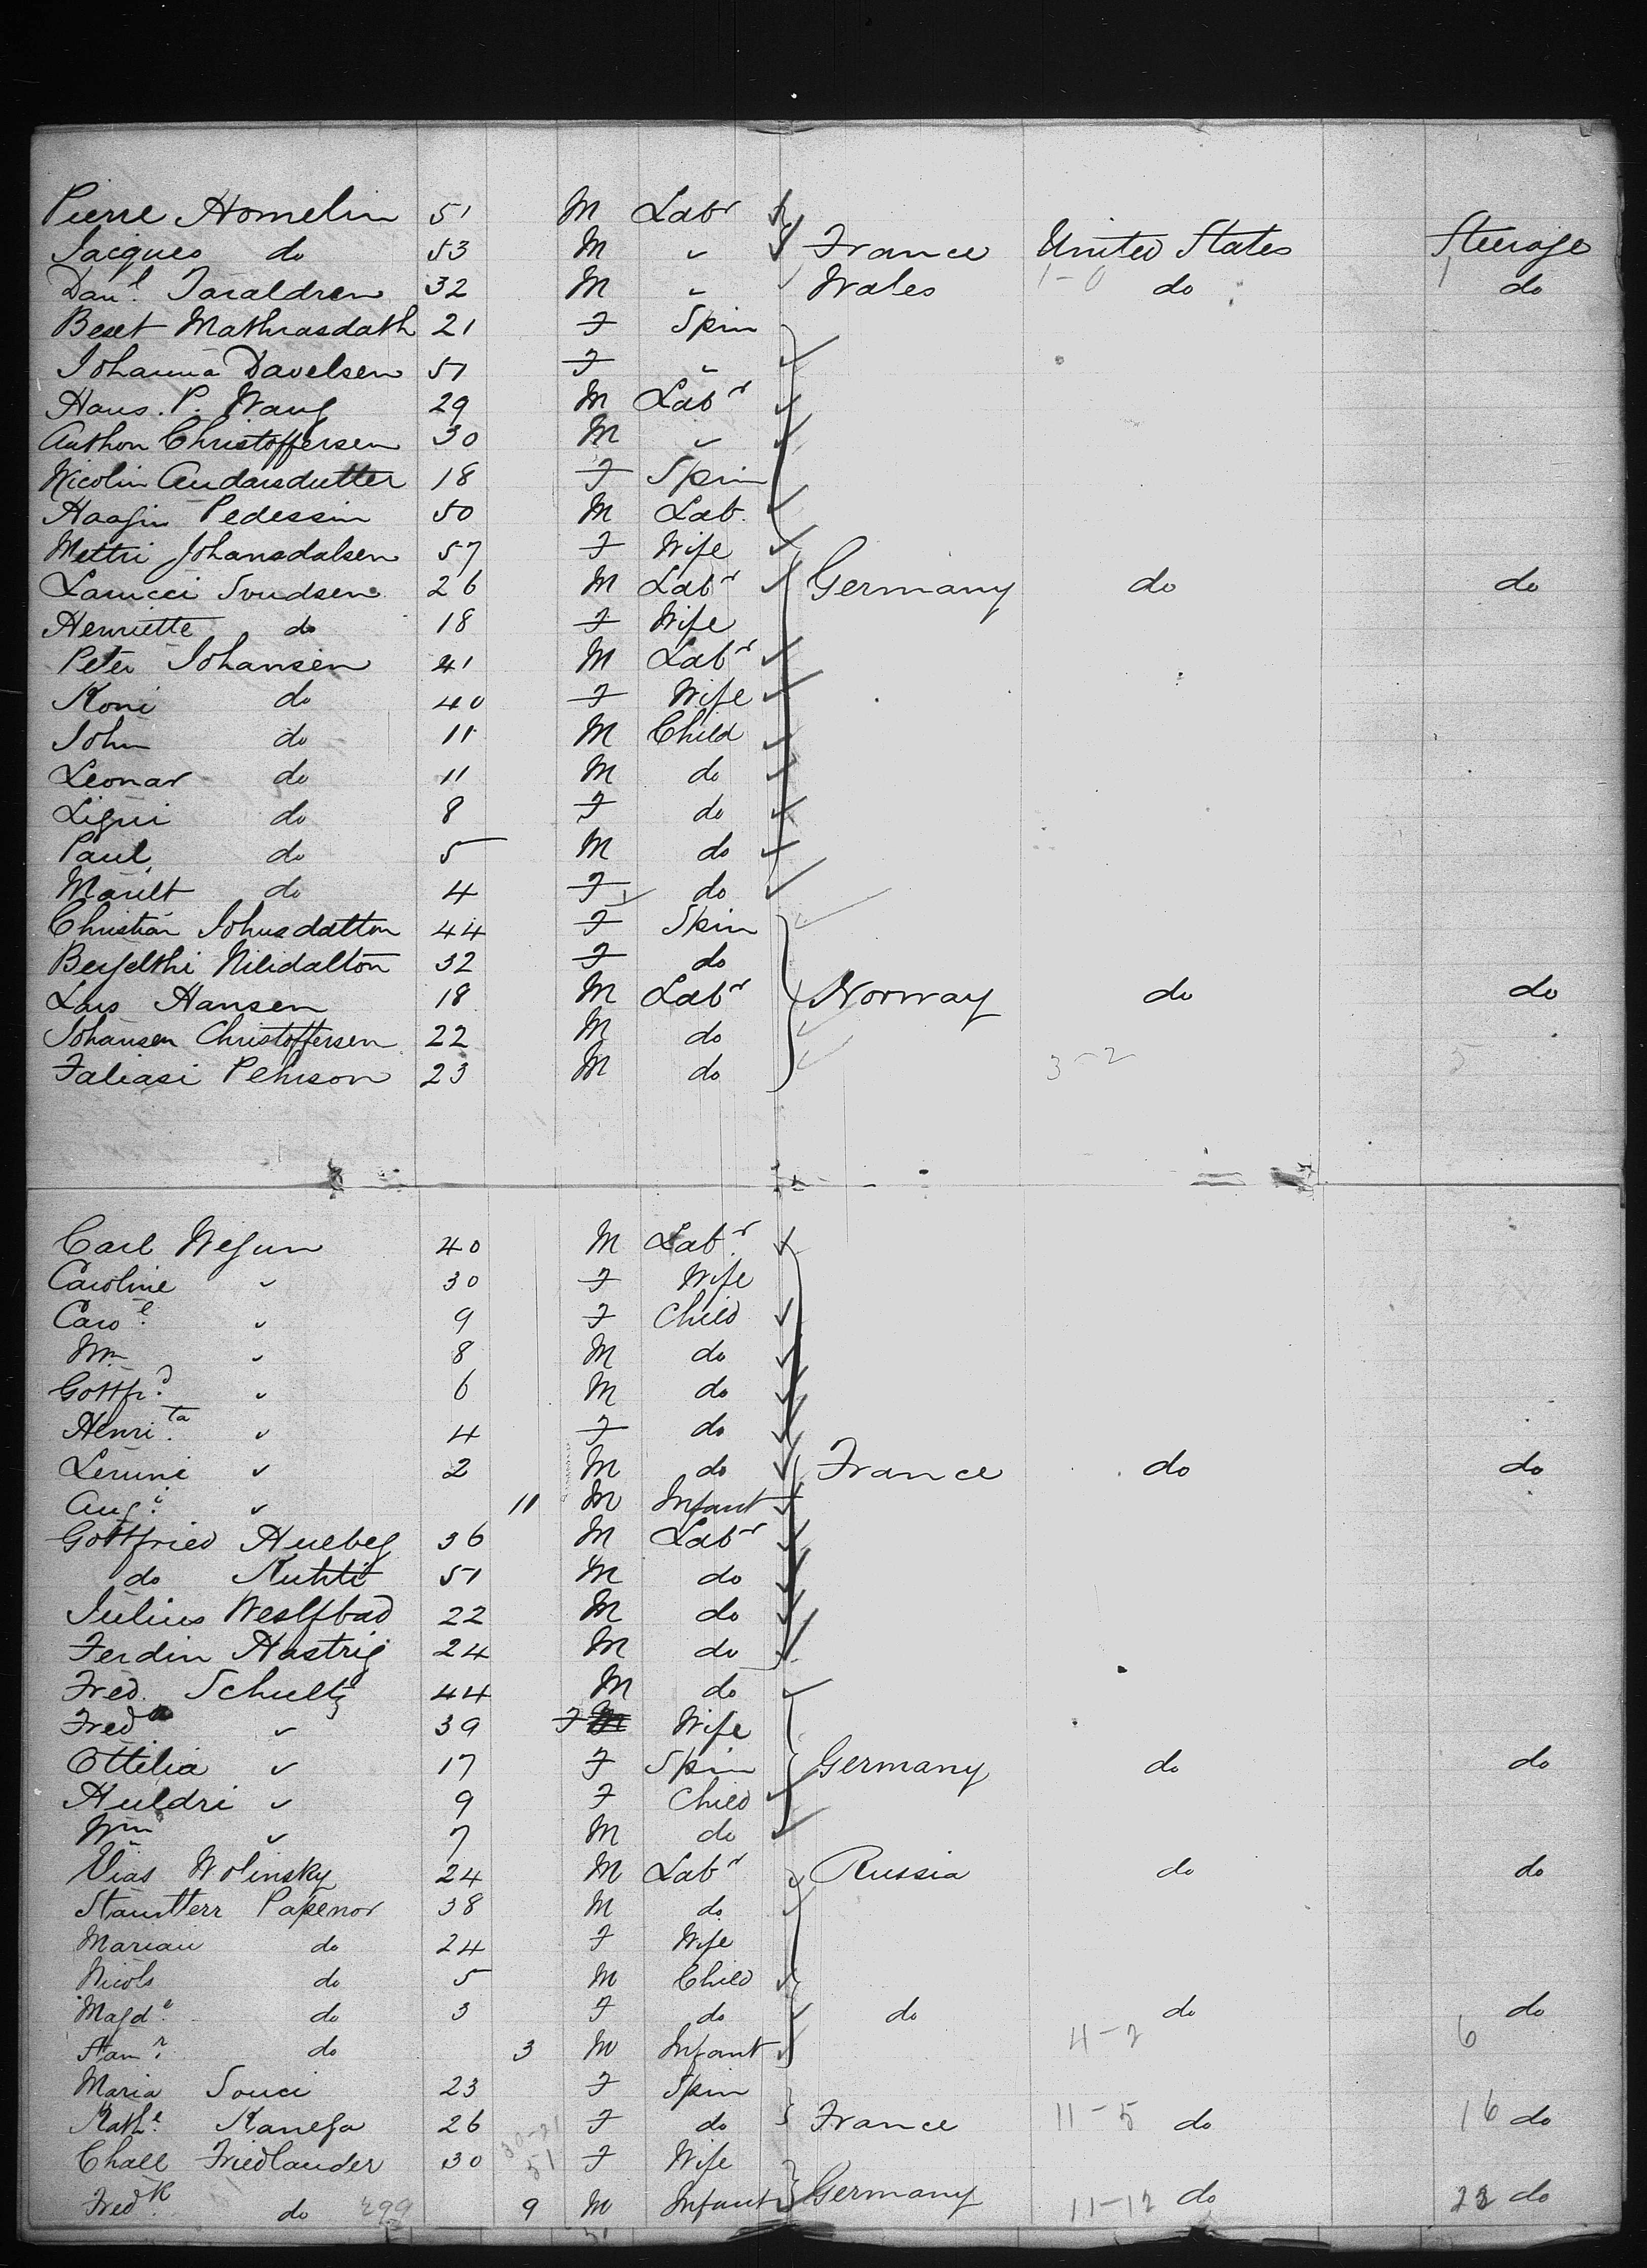 Pierre Homelin 51 M Labr
Jacques do 53 M " France United States Steerage
Danl. Taraldren 32 M " Wales 1-0 do 1 do
Beset Mathiasdath 21 F Spin
Johanna Davelsen 51 F "
Hans. P. Wang 29 M Labr
Anthon Christoffersen 30 M "
Nicolin Andarsdutter 18 F Spin
Haagin Pedessin 50 M Lab.
Mettri Johansdalsen 57 F Wife
Lauricci Svudsen 26 M Labr Germany do do
Henriette do 18 F Wife
Peter Johansen 41 M Labr
Koni do 40 F Wife
John do 11 M Child
Leonar do 11 M do
Ligni do 8 F do
Paul do 5 M do
Marilt do 4 F do
Christian Johusdatton 44 F Spin
Berjelthi Nilidalton 32 F do
Lars Hansen 18 M Labr Norway do do
Johansen Christoffersen 22 M do
Faliasi Pehrson 23 M do 3-2 5
Carl Wegun 40 M Labr.
Caroline " 30 F Wife
Carol. " 9 F Child
Wm " 8 M do
Gottfrd. " 6 M do
Henrita. " 4 F do
Lerini " 2 M do France do do
Augt. " 11 M Infant
Gottfried Huebeg 36 M Labr
do Kuhti 51 M do
Julius Weslfbad 22 M do
Ferdin Hastrig 24 M do
Fred. Schultz 44 M do
Freda " 39 F Wife
Ottilia " 17 F Spin Germany do do
Huldri " 9 F Child
Wm " 7 M do
Elias Wolinsky 24 M Labr Russia do do
Staustterr Papenor 38 M do
Marian do 24 F Wife
Nicols do 5 M Child
Magde. do 3 F do do do do
Stanr. do 3 M Infant 4-2 6
Maria Souci 23 F Spin
Kathe. Kanega 26 F do France 11-5 do 16 do
Chall Friedlander 30 30-21 51 F Wife
Fredk. do 299 9 M Infant Germany 11-12 do 23 do